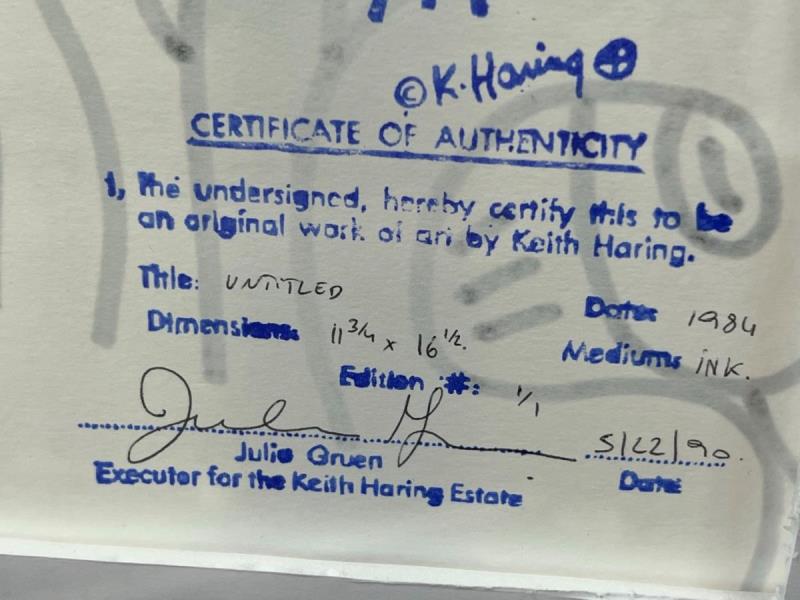 © K. Haring ⊕
CERTIFICATE OF AUTHENTICITY
I, the undersigned, hereby certify this to be
an original work of art by Keith Haring.
Title: UNTITLED
Date: 1984
Dimensions: 11 3/4 x 16 1/2.
Medium: INK.
Edition #: 1/1
5/22/90.
Julia Gruen
Executor for the Keith Haring Estate
Date: